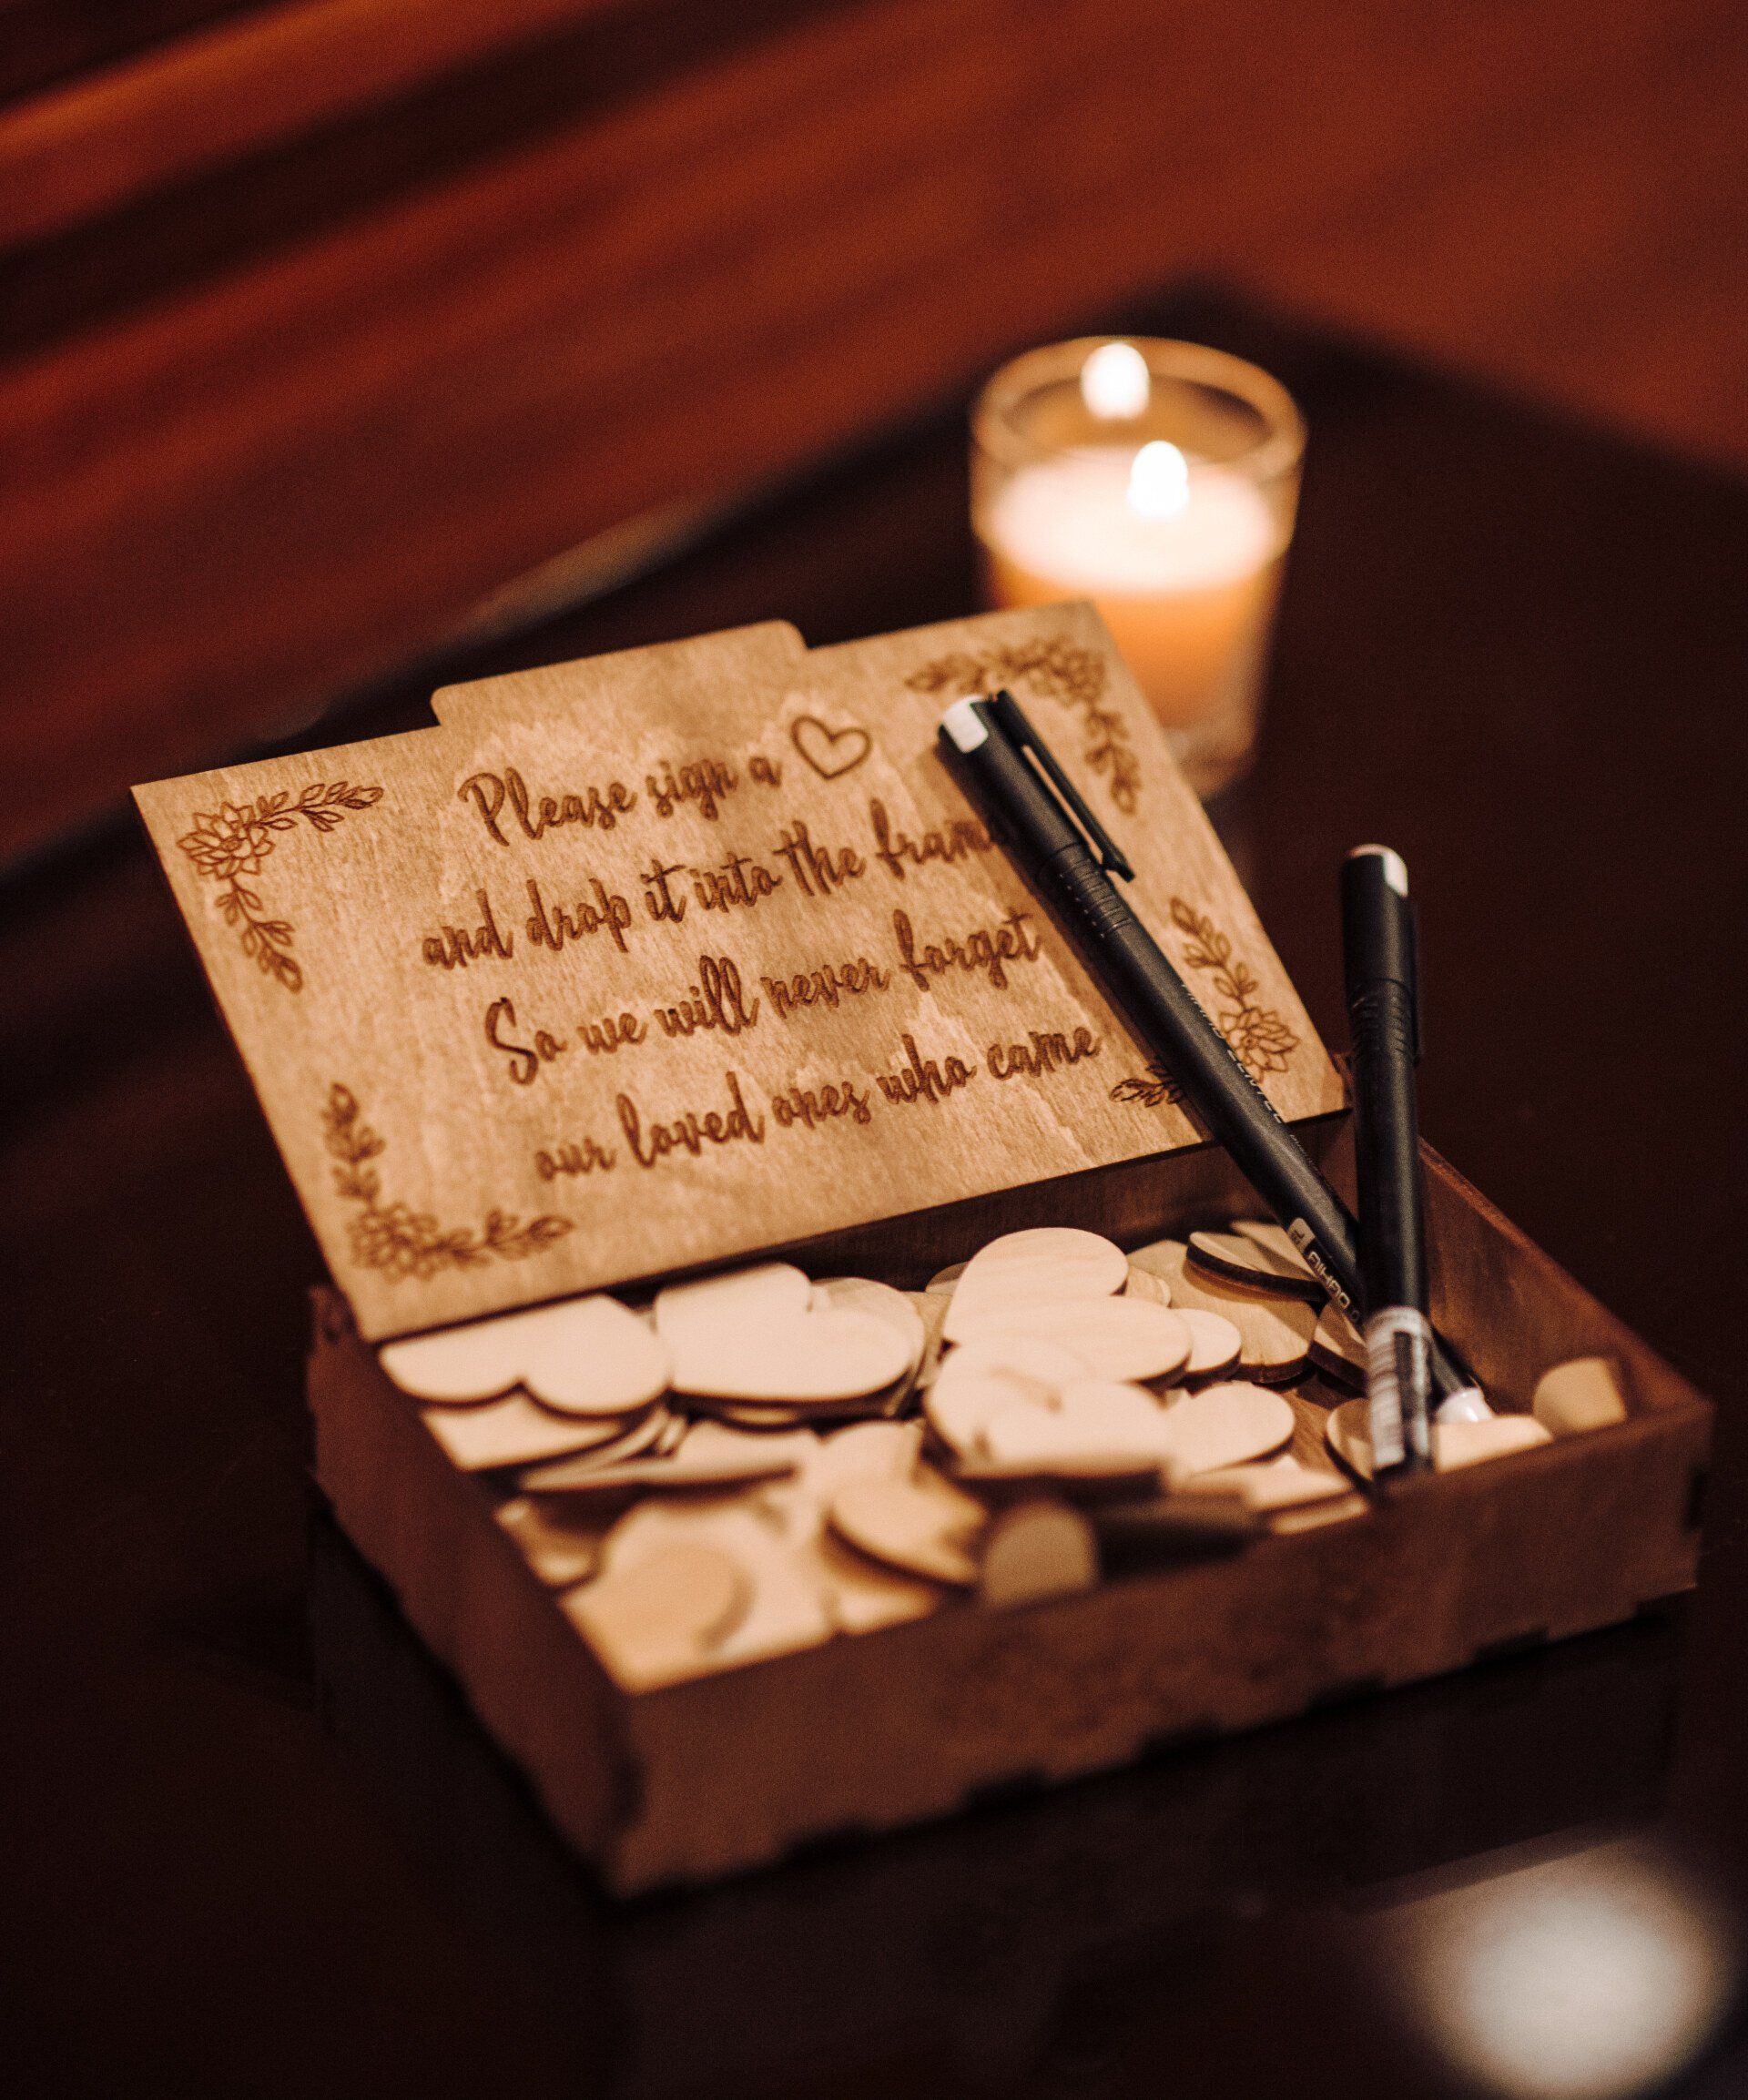 Please sign a ♡
and drop it into the frame
So we will never forget
our loved ones who came
AIHAO